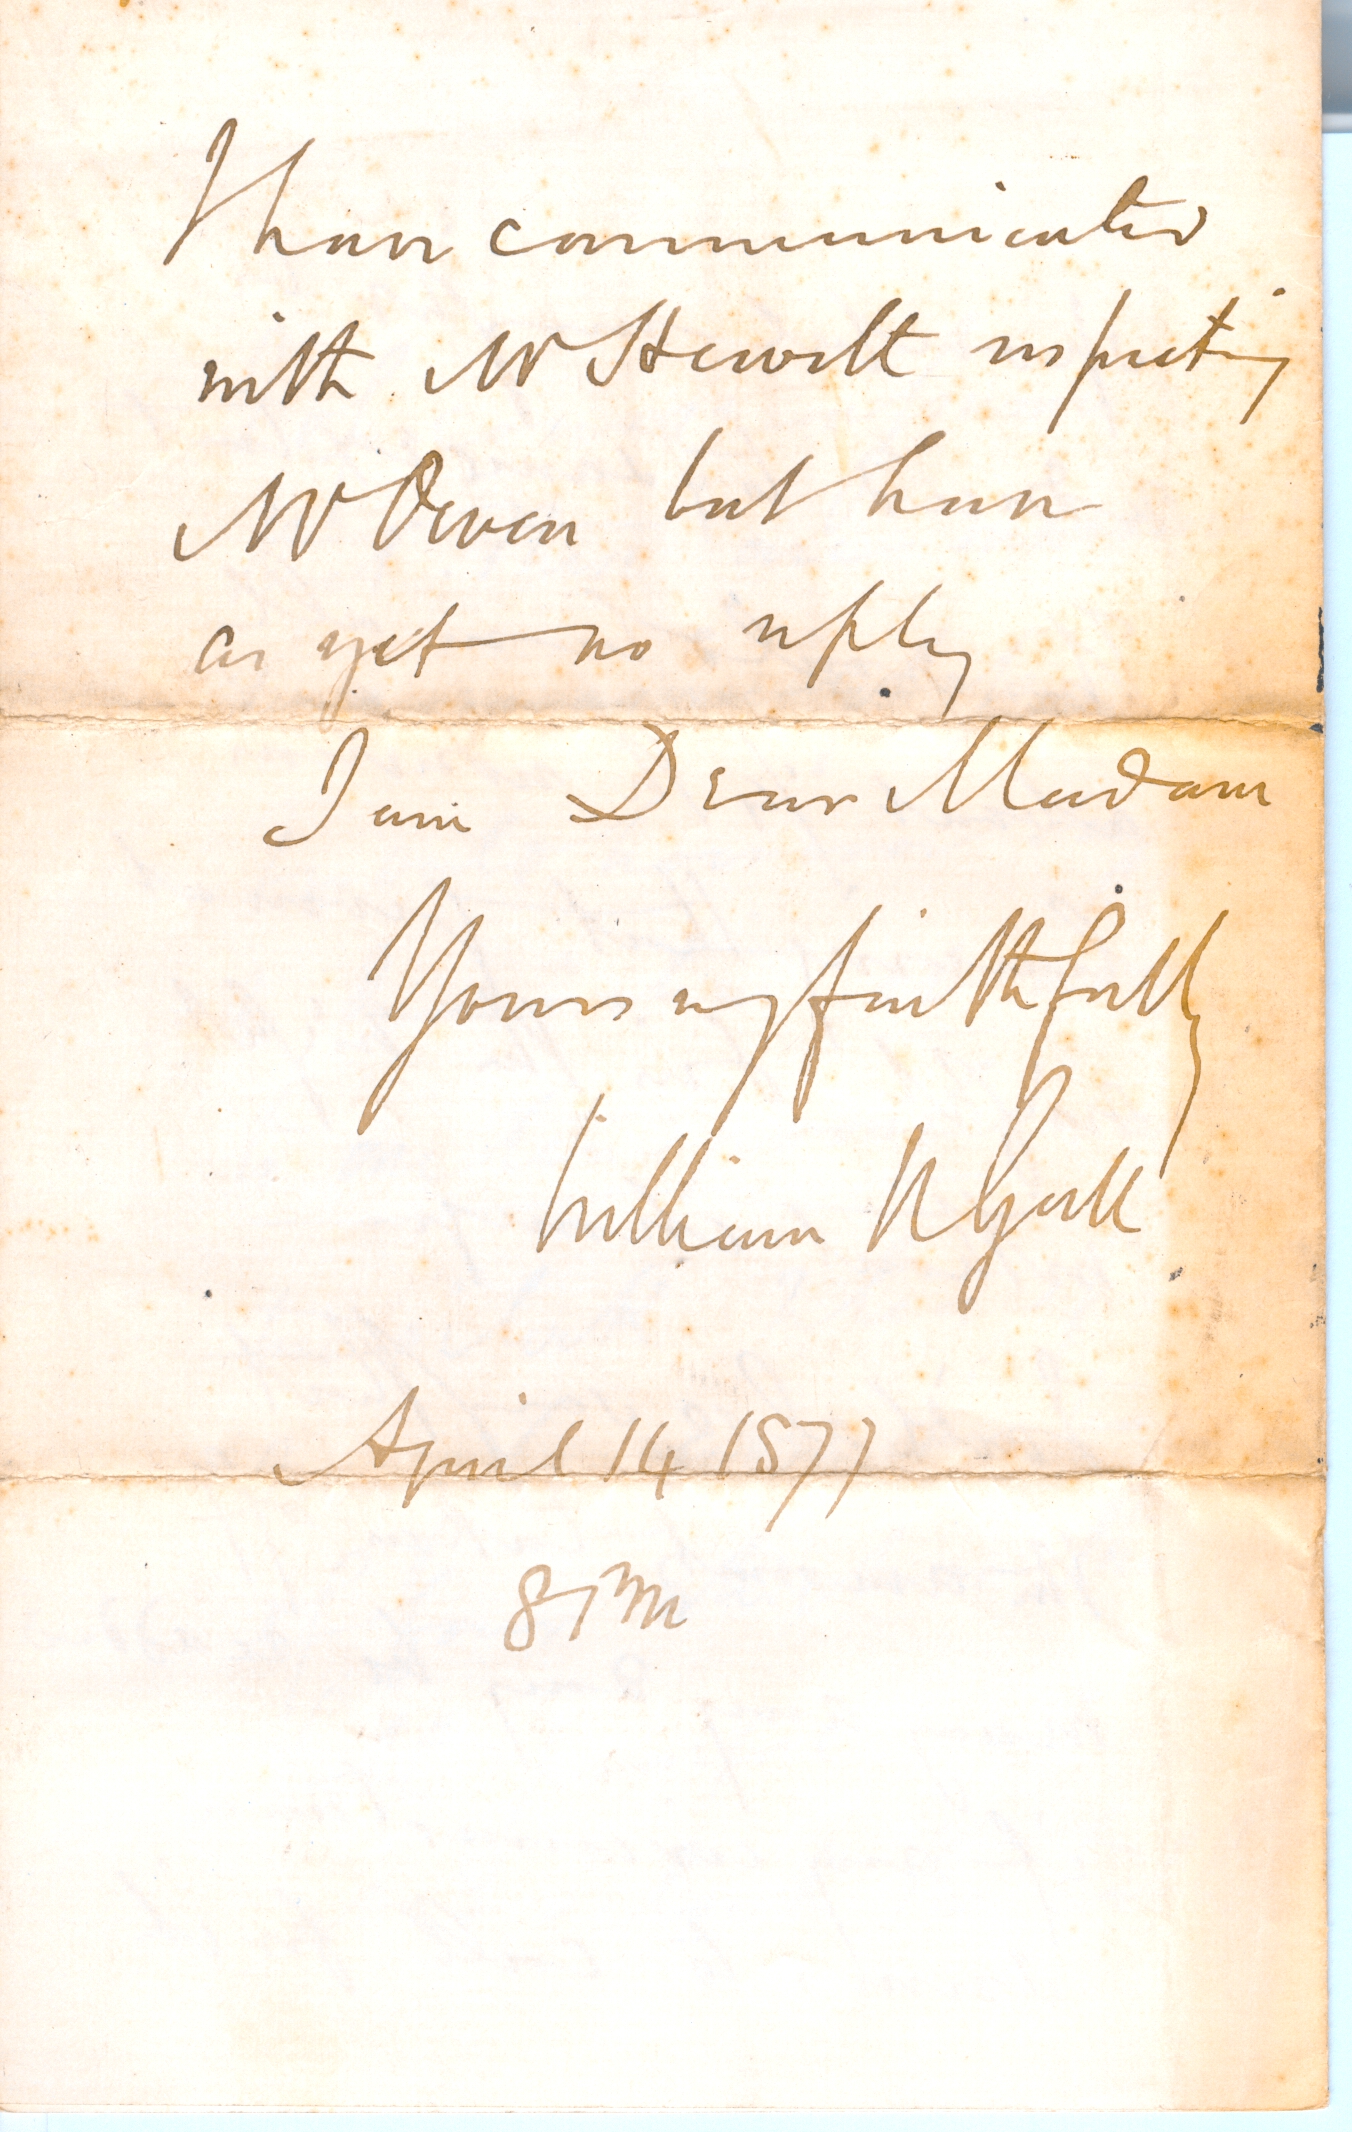 I have communicated
with Mr Hewett respecting
Mr Owen but have
as yet no reply
I am Dear Madam
Yours very faithfully
William
April 14 1877